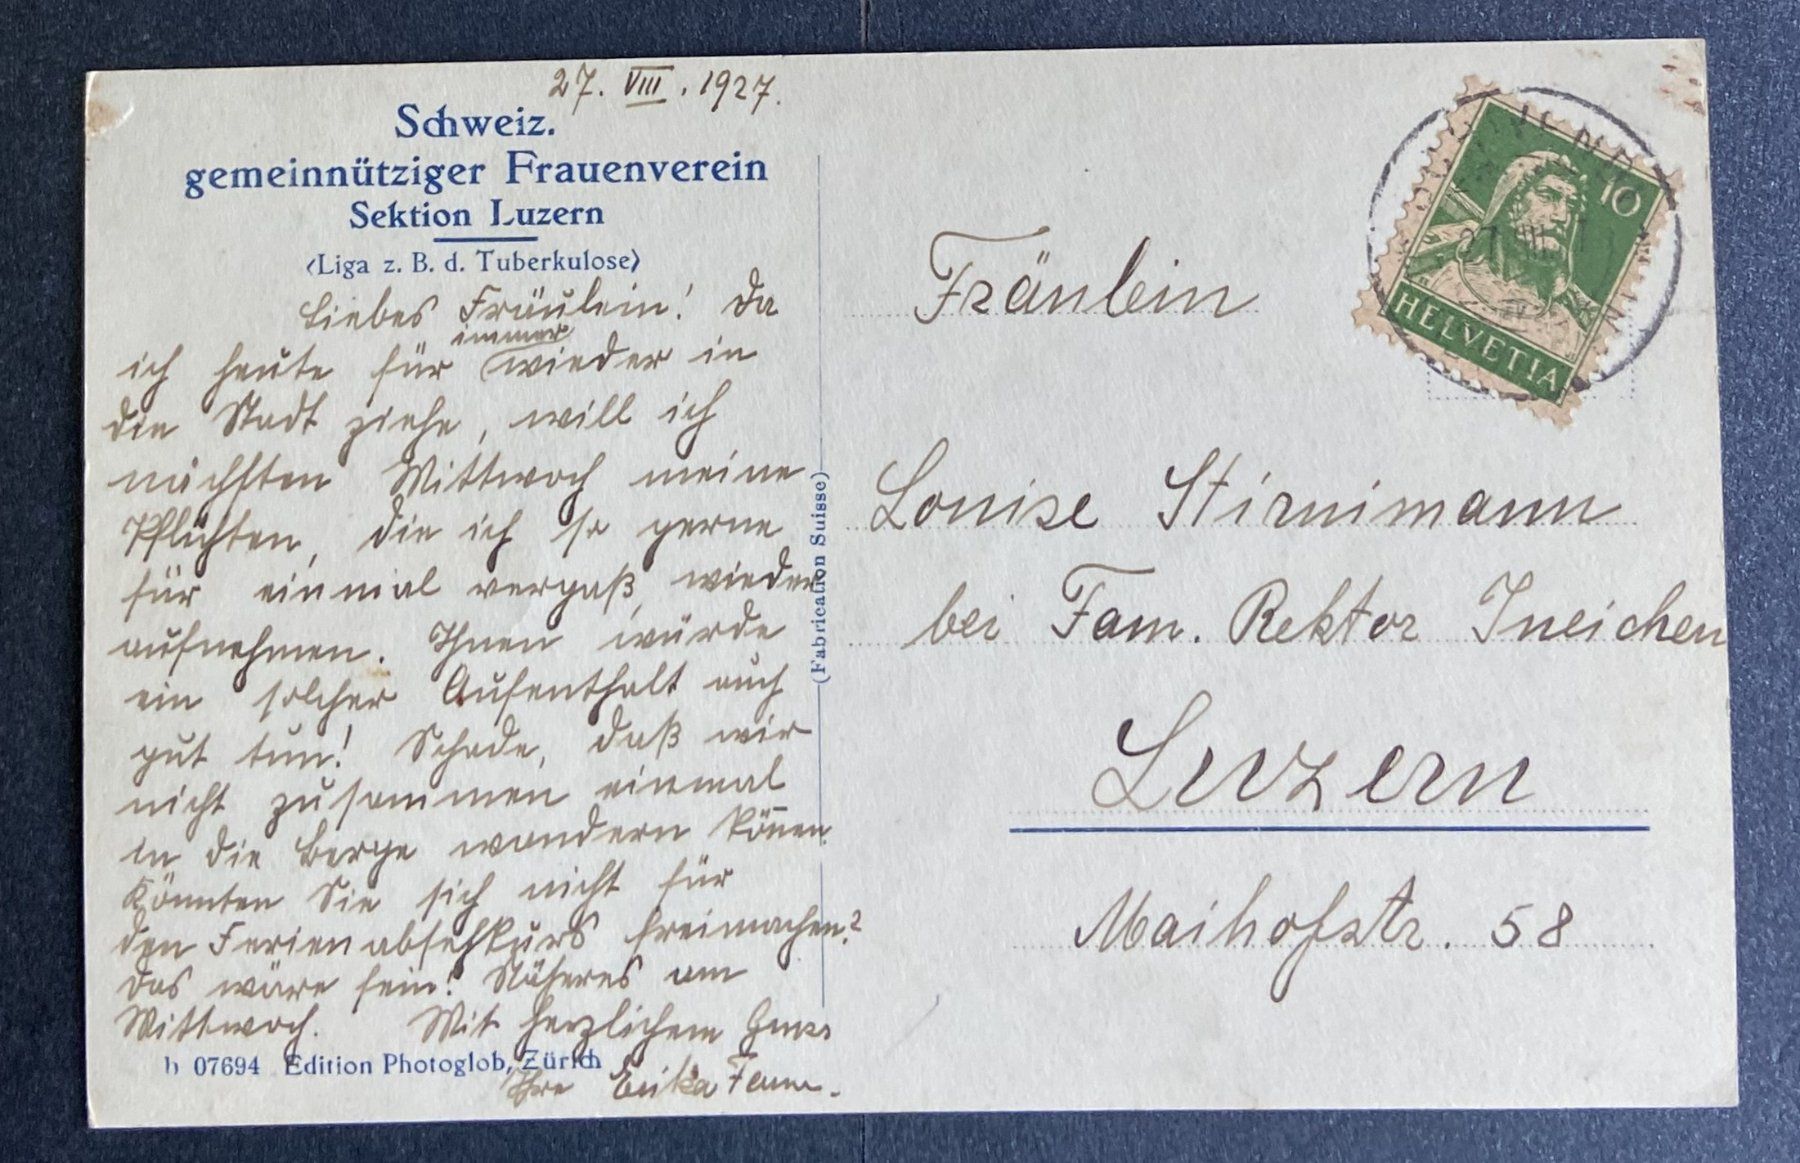 27. VIII. 1927.
Schweiz.
gemeinnütziger Frauenverein
Sektion Luzern
(Liga z. B. d. Tuberkulose)
Liebes Fräulein! Da
ich heute für immer wieder in
die Stadt ziehe, will ich
nächsten Mittwoch meine
Pflichten, die ich so gerne
für einmal vergaß, wieder
aufnehmen. Ihnen würde
ein solcher Aufenthalt auch
gut tun! Schade, daß wir
nicht zusammen einmal
in die Berge wandern können.
Könnten Sie sich nicht für
den Ferienabsehkurs freimachen?
Das wäre fein! Näheres am
Mittwoch. Mit herzlichem Gruss
Ihre Erika
b 07694 Edition Photoglob, Zürich
(Fabrication Suisse)
10
HELVETIA
Fräulein
Louise Stirnimann
bei Fam. Rektor Ineichen
Luzern
Maihofstr. 58